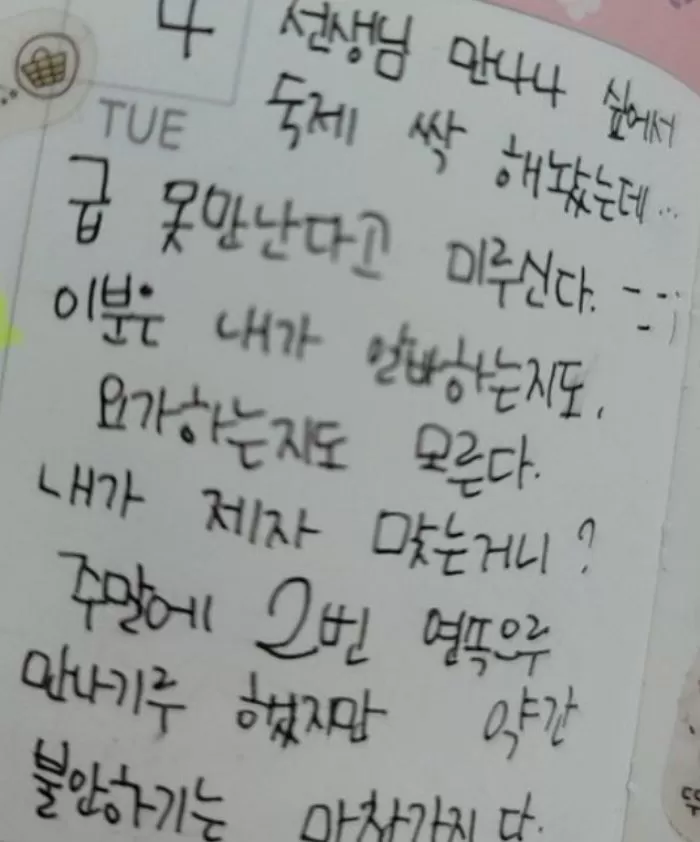 4 선생님 만나나 싶어서
TUE 숙제 싹 해놨는데...
급 못만난다고 미루신다. --;;
이분은 내가 알바하는지도,
요가하는지도 모른다.
내가 제자 맞는거니?
주말에 2번 연속으루
만나기루 했지만 약간
불안하기는 마찬가지다.
뚜